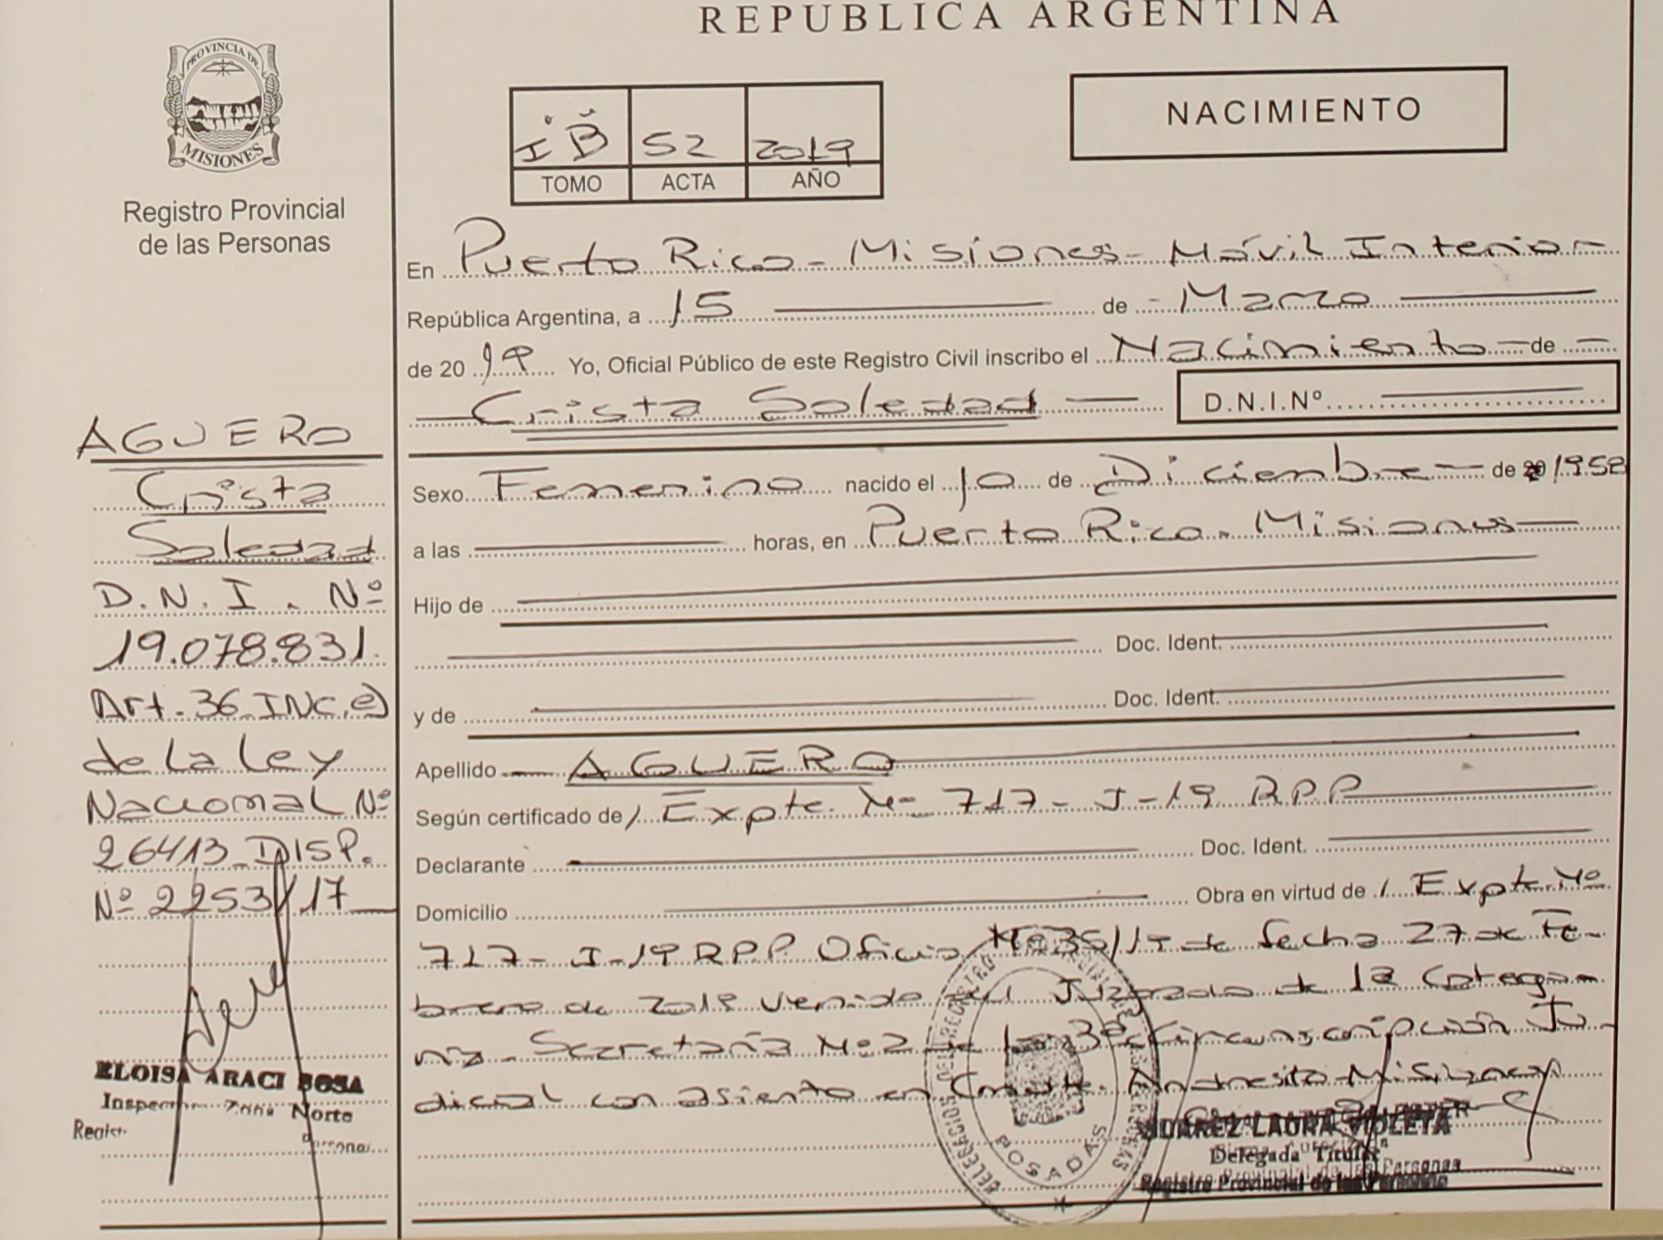 REPUBLICA ARGENTINA
PROVINCIA DE
MISIONES
Registro Provincial
de las Personas
52 2019
TOMO ACTA AÑO
NACIMIENTO
En Puerto Rico - Misiones - Móvil Interior
República Argentina, a 15 de - Marzo
de 2019 Yo, Oficial Público de este Registro Civil inscribo el Nacimiento de
Crista Soledad D.N.I.Nº
Sexo Femenino nacido el 10 de Diciembre de 1958
a las horas, en Puerto Rico. Misiones
Hijo de
Doc. Ident.
y de Doc. Ident.
Apellido AGUERO
Según certificado de / Expte. Nº 717 - I - 19 RPP
Declarante Doc. Ident.
Domicilio Obra en virtud de / Expte. Nº
717 - I - 19 R.P.P. Oficio de fecha 27 de Fe-
brero de venido del Juzgado de 1ª
Secretaría Nº 2 de la 3ª Circunscripción Ju-
dicial con asiento en Cmdte. Andresito - Misiones
AGUERO
Crista
Soledad
D.N.I. Nº
19.078.831.
Art. 36 INC. e)
de la Ley
Nacional Nº
26413 DISP.
Nº 2253/17
ELOISA ARACI BOSA
Zona Norte
POSADAS
SUAREZ LAURA VIOLETA
Delegada Titular
Registro Provincial de las Personas